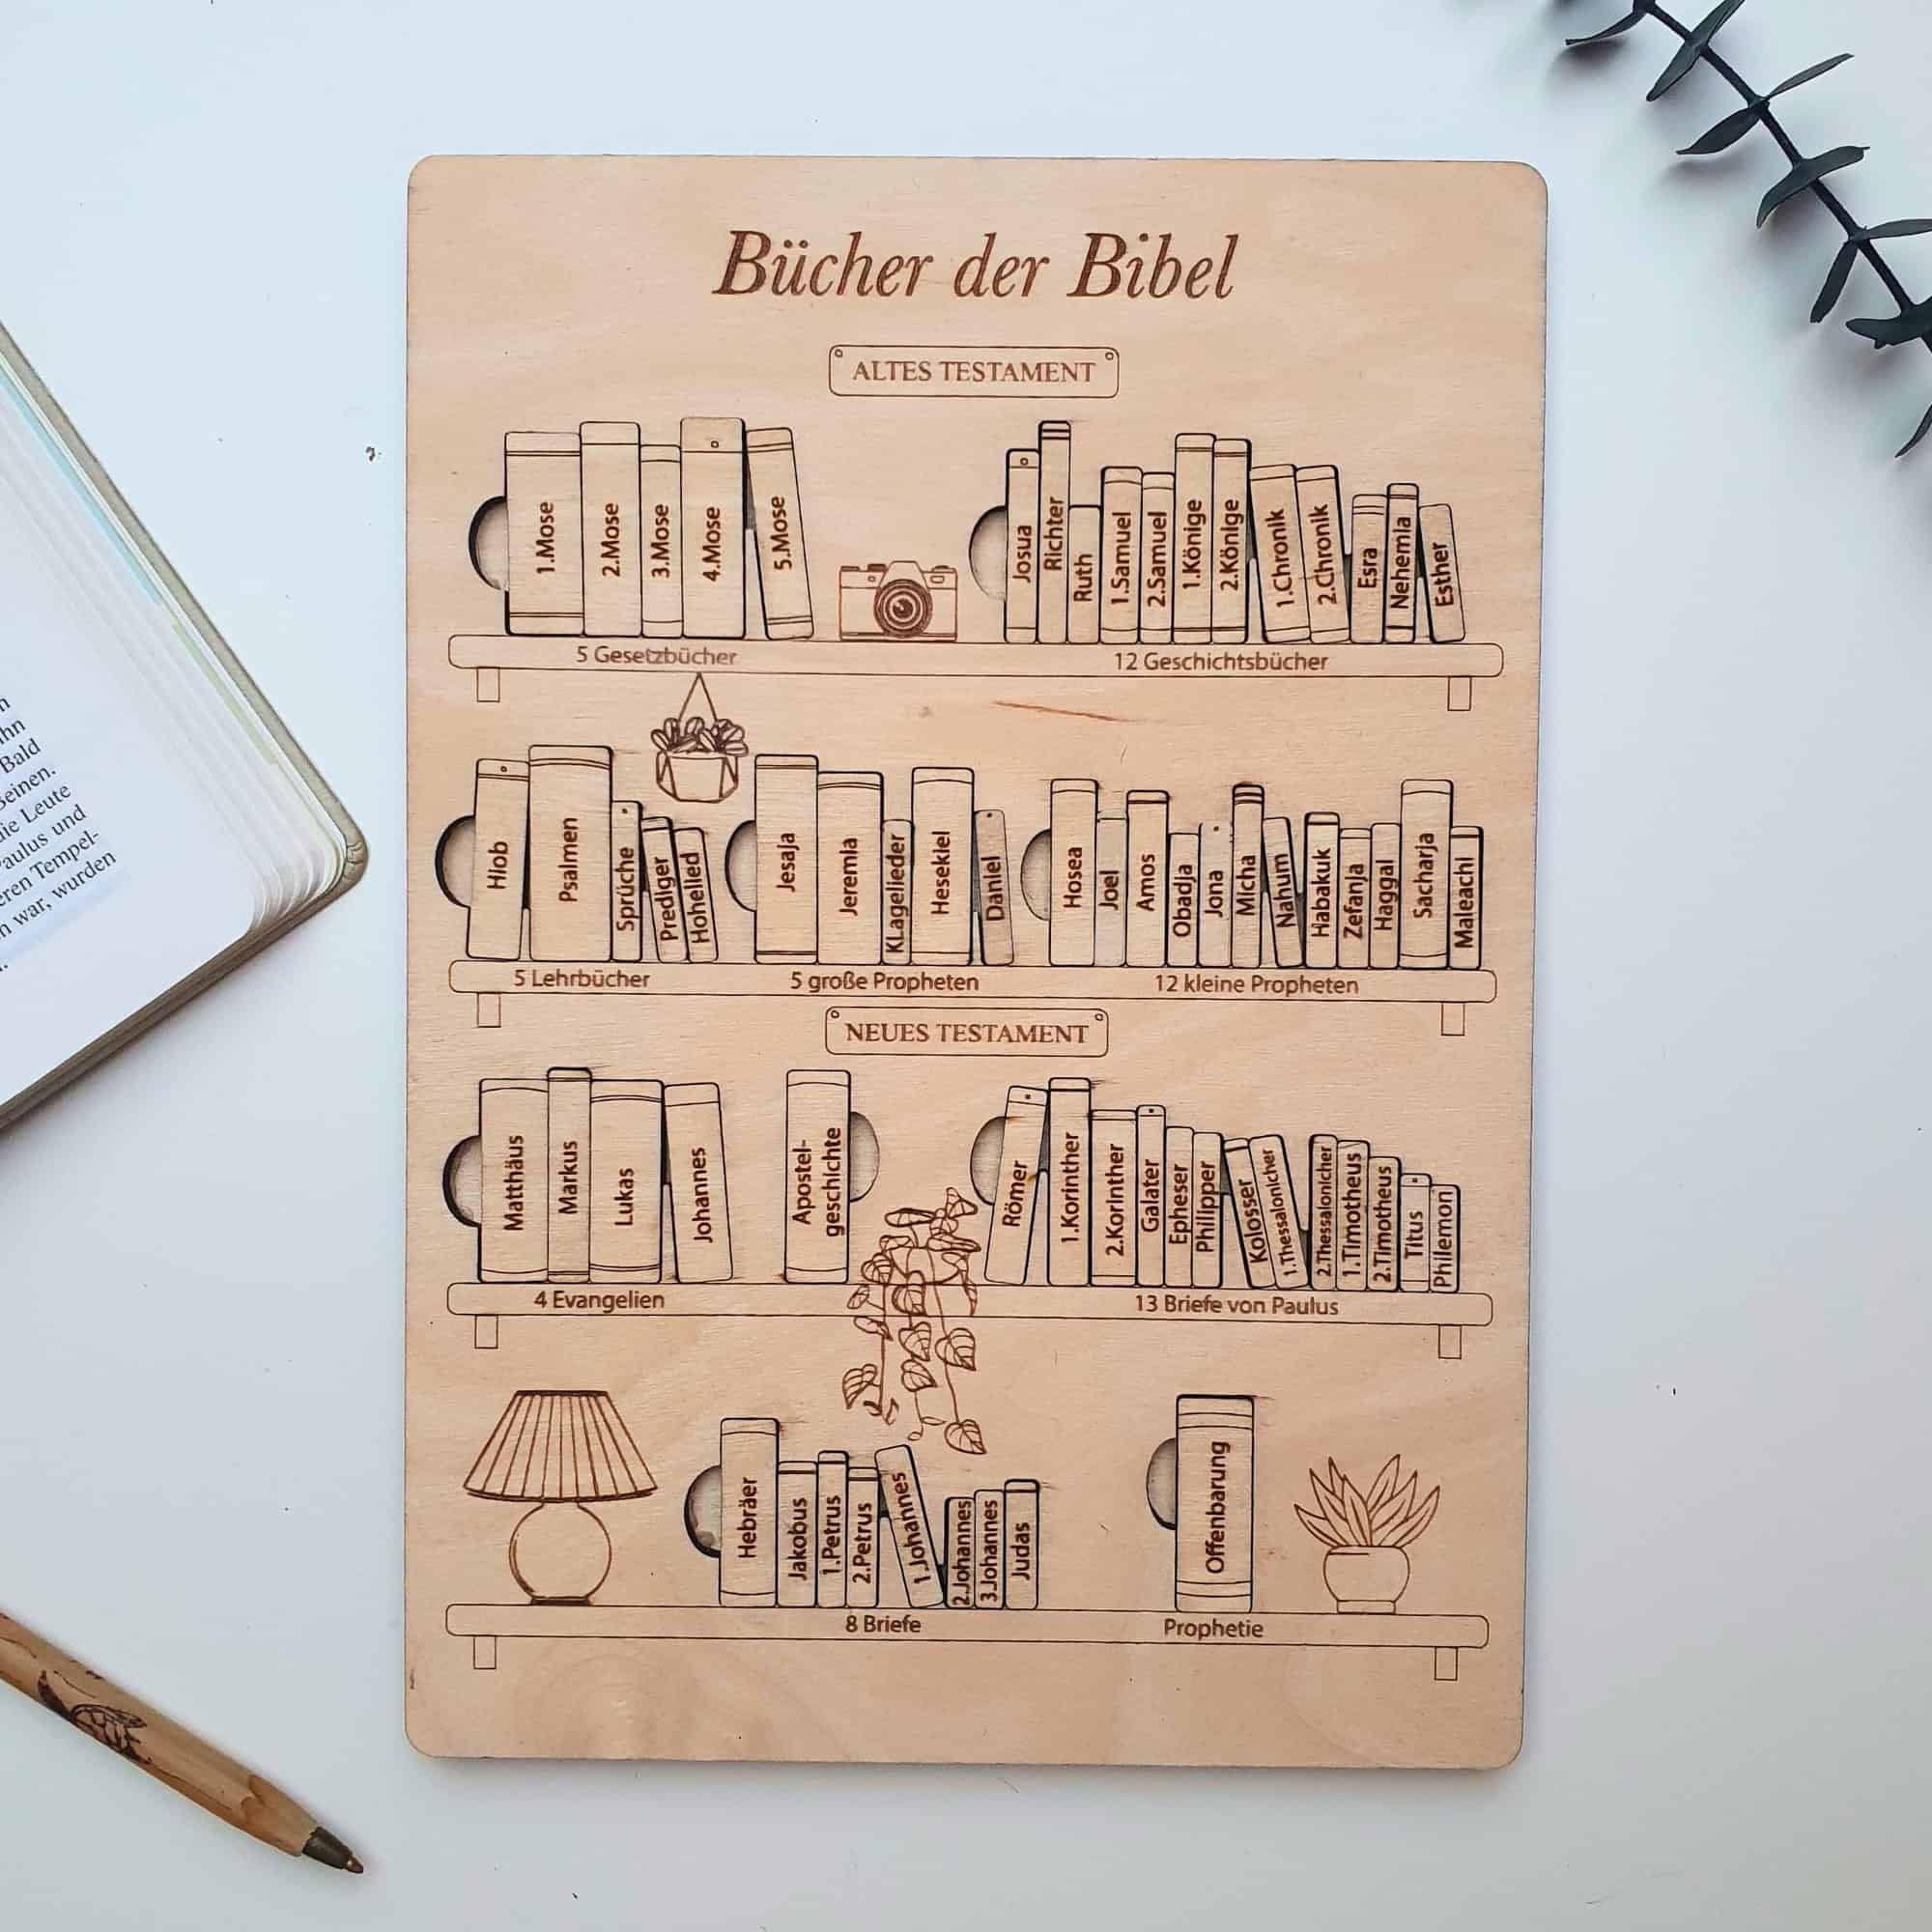 Bücher der Bibel
ALTES TESTAMENT
1.Mose
2.Mose
3.Mose
4.Mose
5.Mose
Josua
Richter
Ruth
1.Samuel
2.Samuel
1.Könige
2.Könige
1.Chronik
2.Chronik
Esra
Nehemia
Esther
5 Gesetzbücher
12 Geschichtsbücher
Hiob
Psalmen
Sprüche
Prediger
Hohelied
Jesaja
Jeremia
KLagelieder
Hesekiel
Daniel
Hosea
Joel
Amos
Obadja
Jona
Micha
Nahum
Habakuk
Zefanja
Haggai
Sacharja
Maleachi
5 Lehrbücher
5 große Propheten
12 kleine Propheten
NEUES TESTAMENT
Matthäus
Markus
Lukas
Johannes
Apostel-
geschichte
Römer
1.Korinther
2.Korinther
Galater
Epheser
Philipper
Kolosser
1.Thessalonicher
2.Thessalonicher
1.Timotheus
2.Timotheus
Titus
Philemon
4 Evangelien
13 Briefe von Paulus
Hebräer
Jakobus
1.Petrus
2.Petrus
1.Johannes
2.Johannes
3.Johannes
Judas
Offenbarung
8 Briefe
Prophetie
Bald
Seinen.
die Leute
Paulus und
eren Tempel-
n war, wurden